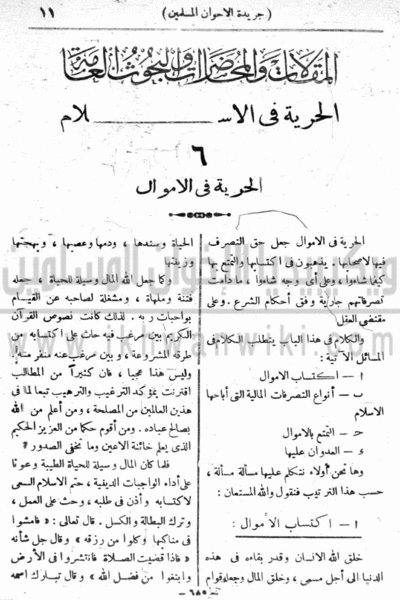 ( جريدة الاخوان المسلمين )
١١
المقالات والمحاضرات والبحوث العامة
الحرية فى الاســـــــــلام
٦
الحرية فى الاموال
الحرية فى الاموال جعل حق التصرف
فيها لاصحابها . يذهبون فى اكتسابها والتمتع بها
كيفما شاموا ، وعلى أى وجه شاموا ، ما دامت
تصرفاتهم جارية وفق أحكام الشرع . وعلى
مقتضى العقل
والكلام فى هذا الباب يتطلب الكلام فى
المسائل الآتية :
ا — اكتساب الاموال
ب — أنواع التصرفات المالية التى أباحها
الاسلام
ح — التمتع بالاموال
ء — العدوان عليها
وها نحن أولاء نتكلم عليها مسألة مسألة ،
حسب هذا الترتيب فنقول والله المستعان :
ا — اكتساب الأموال :
خلق الله الانسان وقدر بقاءه فى هذه
الدنيا الى أجل مسمى ، وخلق المال وجعله قوام
الحياة وسندها ، ودمها وعصبها ، وبهجتها
وزينتها
وكما جعل الله المال وسيلة للحياة ، جعله
فتنة وملهاة ، ومشغلة لصاحبه عن القيام
بواجبات ربه . لذلك كانت نصوص القرآن
الكريم بين مرغب فيه حاث على اكتسابه من
طرقه المشروعة ، وبين مرغب عنه منفر منه .
وليس هذا عجبا ، فان كثيرا من المطالب
اقترنت بمؤكد الترغيب والترهيب تبعا لما فى
هذين العالمين من المصلحة ، ومن أعلم من الله
بصالح عباده . ومن أقوم حكما من العزيز الحكيم
الذى يعلم خائنة الاعين وما تخفى الصدور ؟
فلما كان المال وسيلة للحياة الطيبة وعونا
على أداء الواجبات الدينية ، حتم الاسلام السعى
لاكتسابه وأذن فى طلبه ، وحث على العمل ،
وترك البطالة والكسل . قال تعالى : « فامشوا
فى مناكبها وكلوا من رزقه » وقال جل شأنه
« فاذا قضيت الصلاة فانتشروا فى الأرض
وابتغوا من فضل الله » وقال تبارك اسمه
— ٦٨٥ —
ويكيبيديا الإخوان المسلمين
www.ikhwanwiki.com